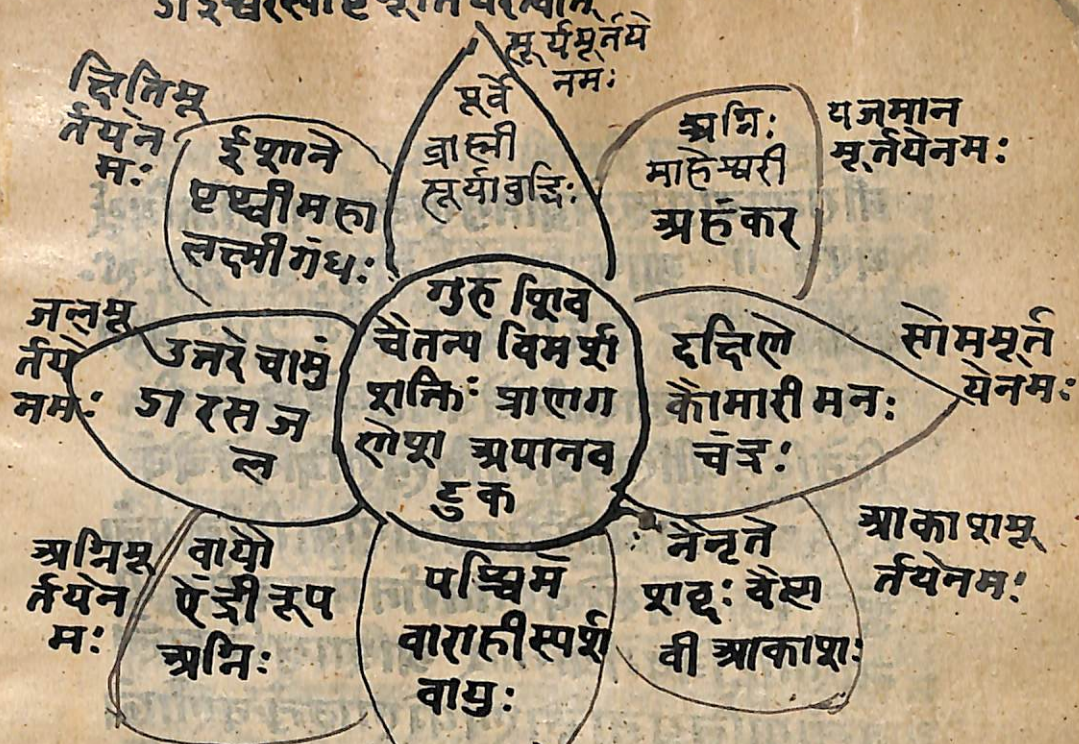 सूर्यमूर्तये
नमः
पूर्वे
ब्राह्मी
सूर्याबुद्धिः
अग्निः
माहेश्वरी
अहंकर
यजमान
मूर्तयेनमः
क्षितिमू
र्तयेन
मः
ईशाने
पृथ्वीमहा
लक्ष्मीगंधः
गुरु शिव
चैतन्य विमर्श
शक्तिः प्राणग
णेश अपानव
टुक
दक्षिणे
कौमारी मनः
चंद्रः
सोममूर्त
येनमः
जलमू
र्तये
नमः
उत्तरे चामुं
डा रस ज
ल
नैनृते
शब्दः वैष्ण
वी आकाशः
आकाशमू
र्तयेनमः
पश्चिमे
वाराहीस्पर्श
वायुः
वायौ
ऐंद्री रूप
अग्निः
अग्निमू
र्तयेन
मः